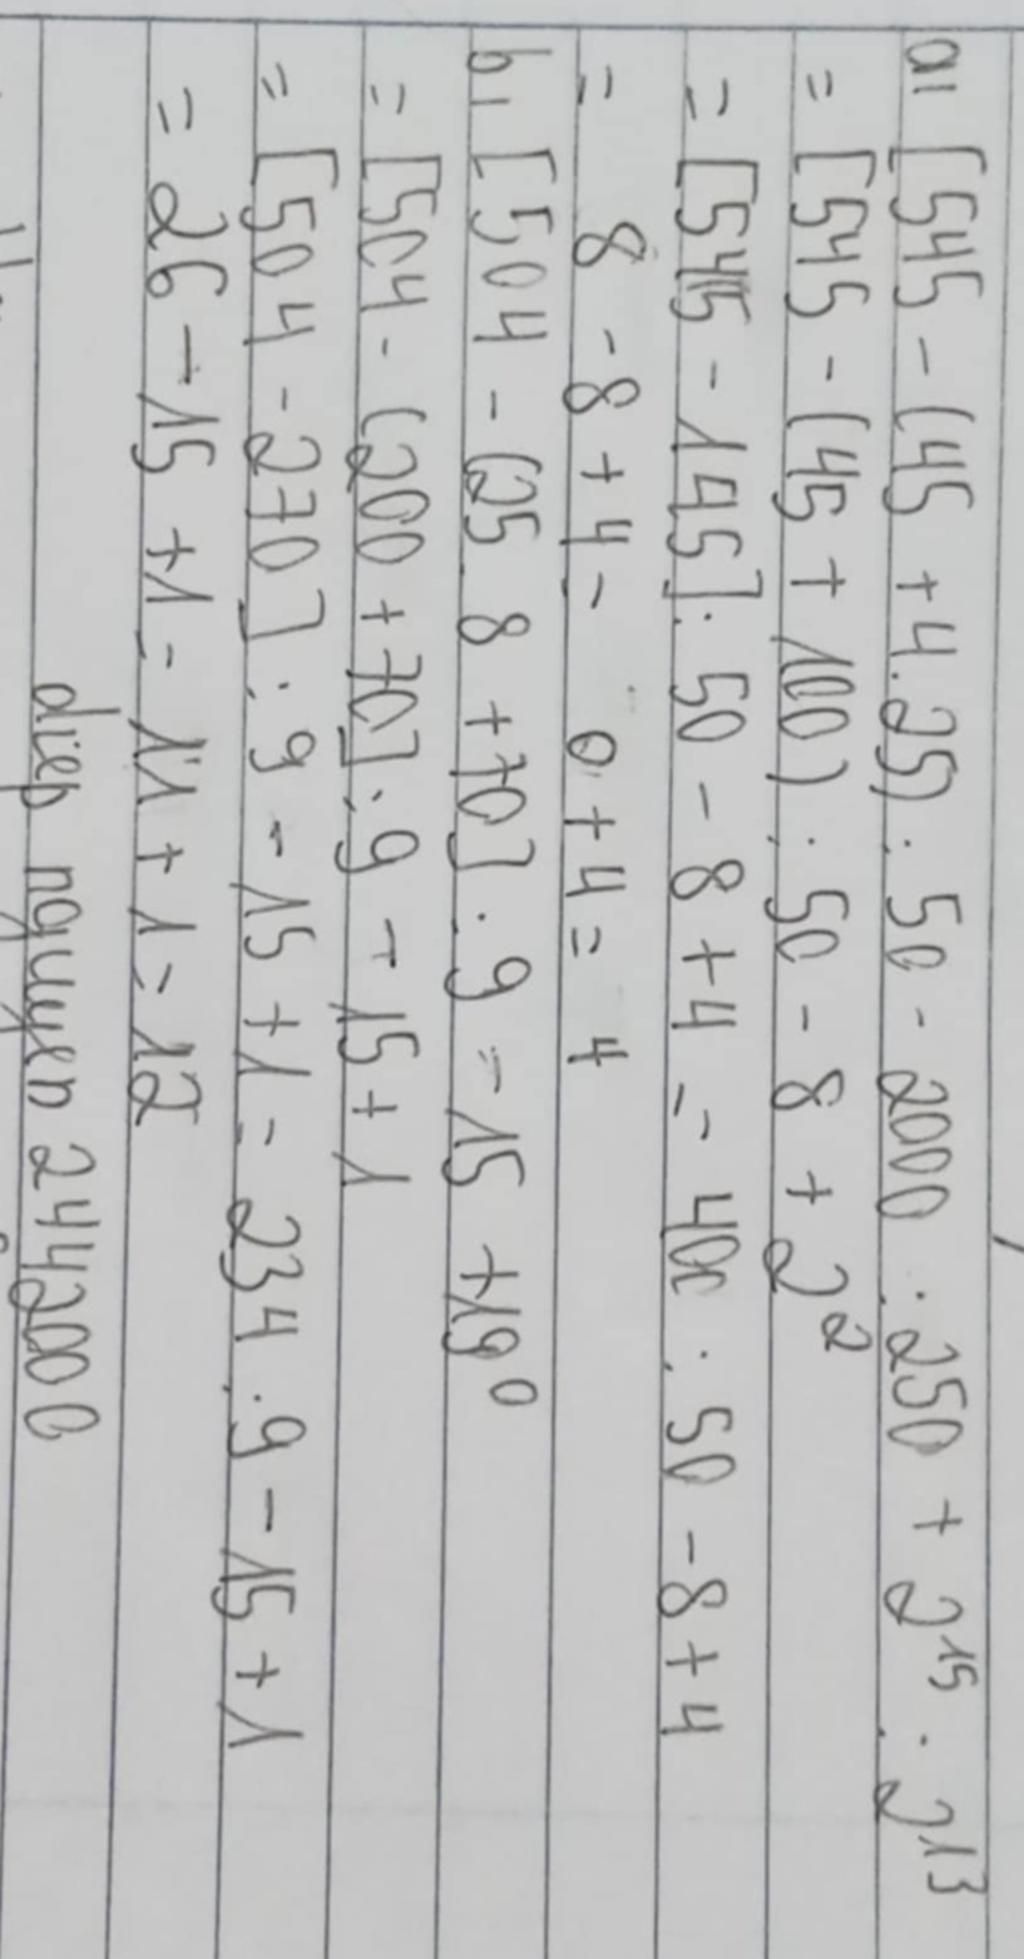 a, [545 - (45 + 4.25) : 50 - 2000 : 250 + 2¹⁵ : 2¹³
= [545 - (45 + 100) : 50 - 8 + 2²
= [545 - 145] : 50 - 8 + 4 = 400 : 50 - 8 + 4
= 8 - 8 + 4 = 0 + 4 = 4
b, [504 - (25 8 + 70] : 9 - 15 + 19⁰
= [504 - (200 + 70] : 9 - 15 + 1
= [504 - 270] : 9 - 15 + 1 = 234 : 9 - 15 + 1
= 26 - 15 + 1 = 11 + 1 = 12
diep nguyen 2442000